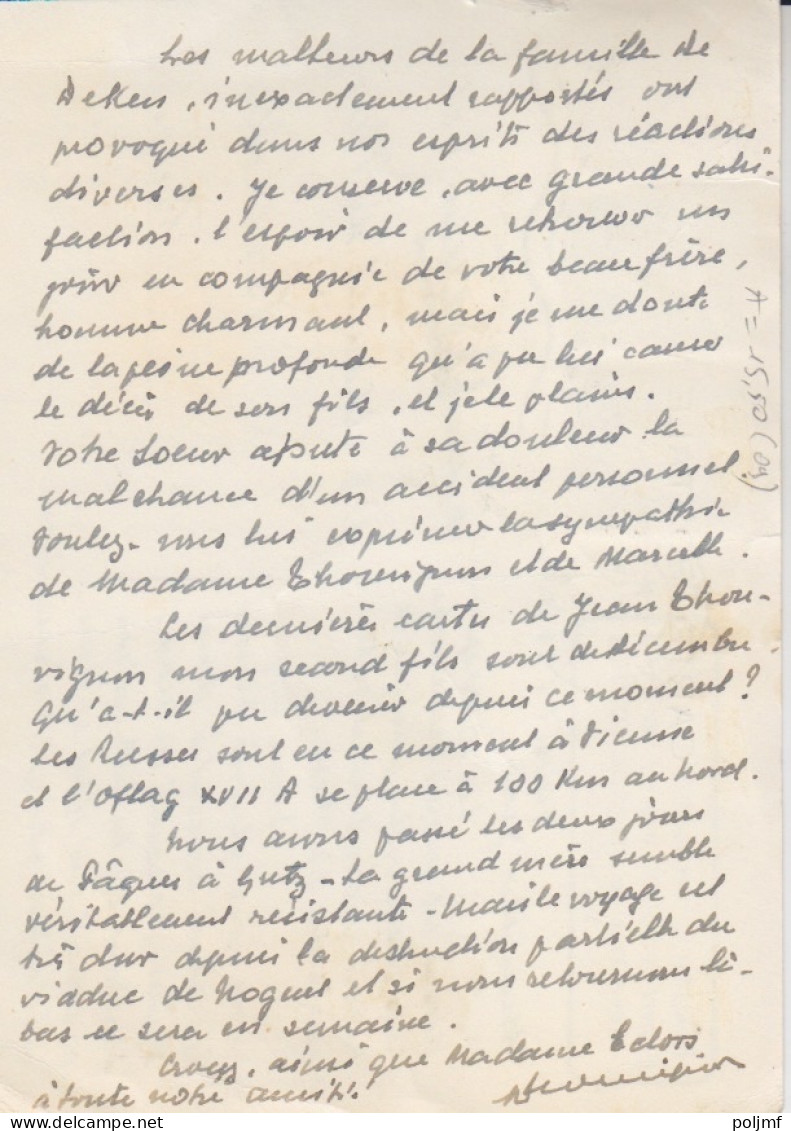 Les malheurs de la famille de
Deken, inexactement rapportés ont
provoqué dans nos esprits des réactions
diverses. Je conserve, avec grande satis-
faction, l'espoir de me retrouver un
jour en compagnie de votre beau frère,
homme charmant, mais je me doute
de la peine profonde qu'a pu lui causer
le décès de son fils, et je le plains.
Votre soeur ajoute à sa douleur la
malchance d'un accident personnel
voulez-vous lui exprimer la sympathie
de Madame Thouvignon et de Marcelle.
Les dernières cartes de Jean Thou-
vignon mon second fils sont de décembre.
Qu'a-t-il pu devenir depuis ce moment?
Les Russes sont en ce moment à Vienne
et l'Oflag XVII A se place à 100 Km au Nord.
Nous avons passé les deux jours
de Pâques à - La grand mère semble
véritablement résistante - Mais le voyage est
très dur depuis la destruction partielle du
viaduc de et si nous retournons là-
bas ce sera en semaine.
Croyez, ainsi que Madame
à toute notre amitié.
Thouvignon
A = 15,50 (09)
poljmf